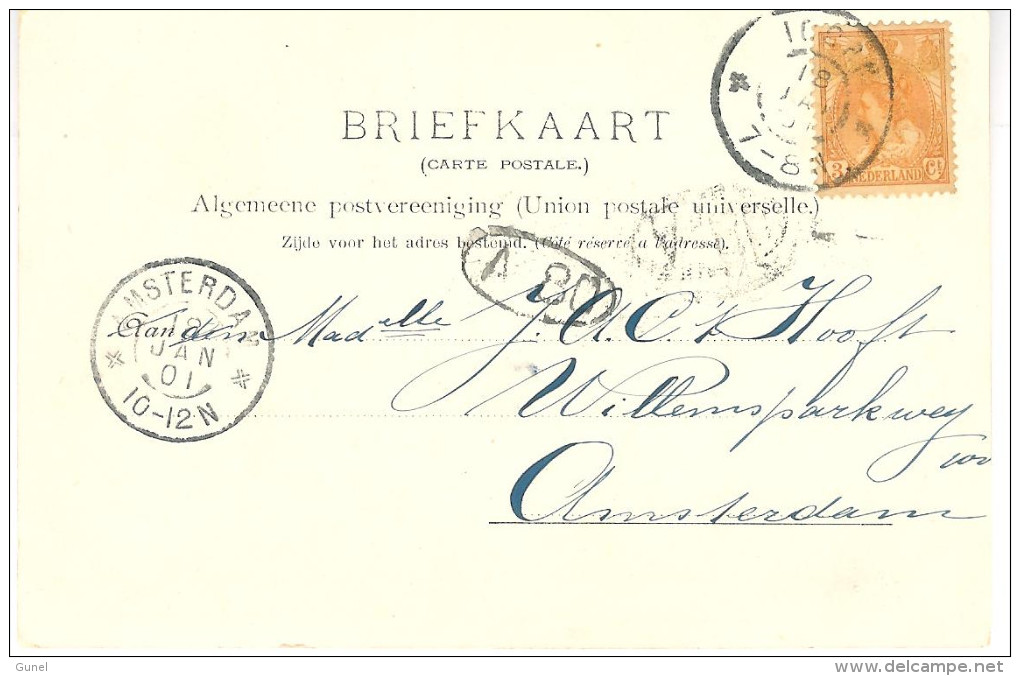 BRIEFKAART
(CARTE POSTALE.)
Algemeene postvereeniging (Union postale universelle.)
Zijde voor het adres bestemd. (Côté réservé à l'adresse).
3 Ct NEDERLAND
18
7-8 N
A 80
AMSTERDAM
18
JAN
01
10-12N
Aan dem Madelle J. A. C. 't Hooft
Willemsparkweg
Amsterdam
Gunel
www.delcampe.net